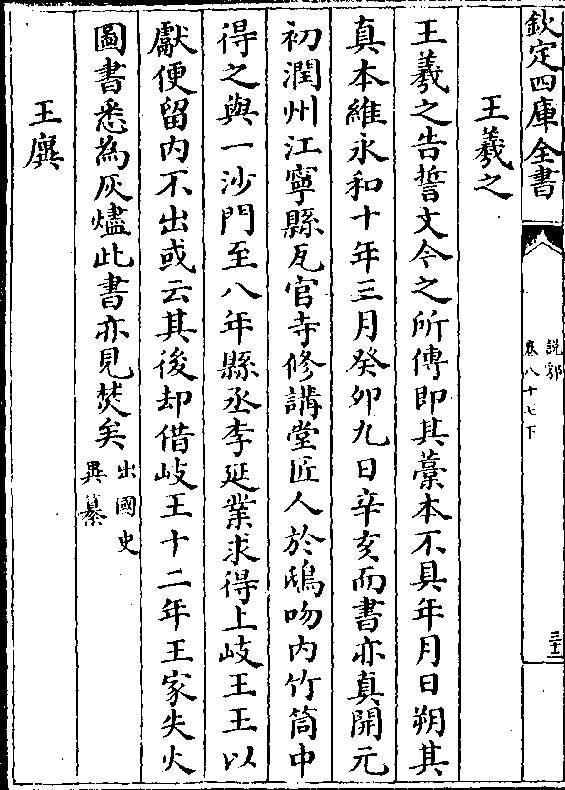 欽定四庫全書
說郛
卷八十七下
三十二
王羲之
王羲之告誓文今之所傳即其藁本不具年月日朔其
真本維永和十年三月癸卯九日辛亥而書亦真開元
初潤州江寧縣瓦官寺修講堂匠人於鴟吻内竹筒中
得之與一沙門至八年縣丞李延業求得上岐王王以
獻便留内不出或云其後却借岐王十二年王家失火
圖書悉為灰燼此書亦見焚矣
出國史
異纂
王廙